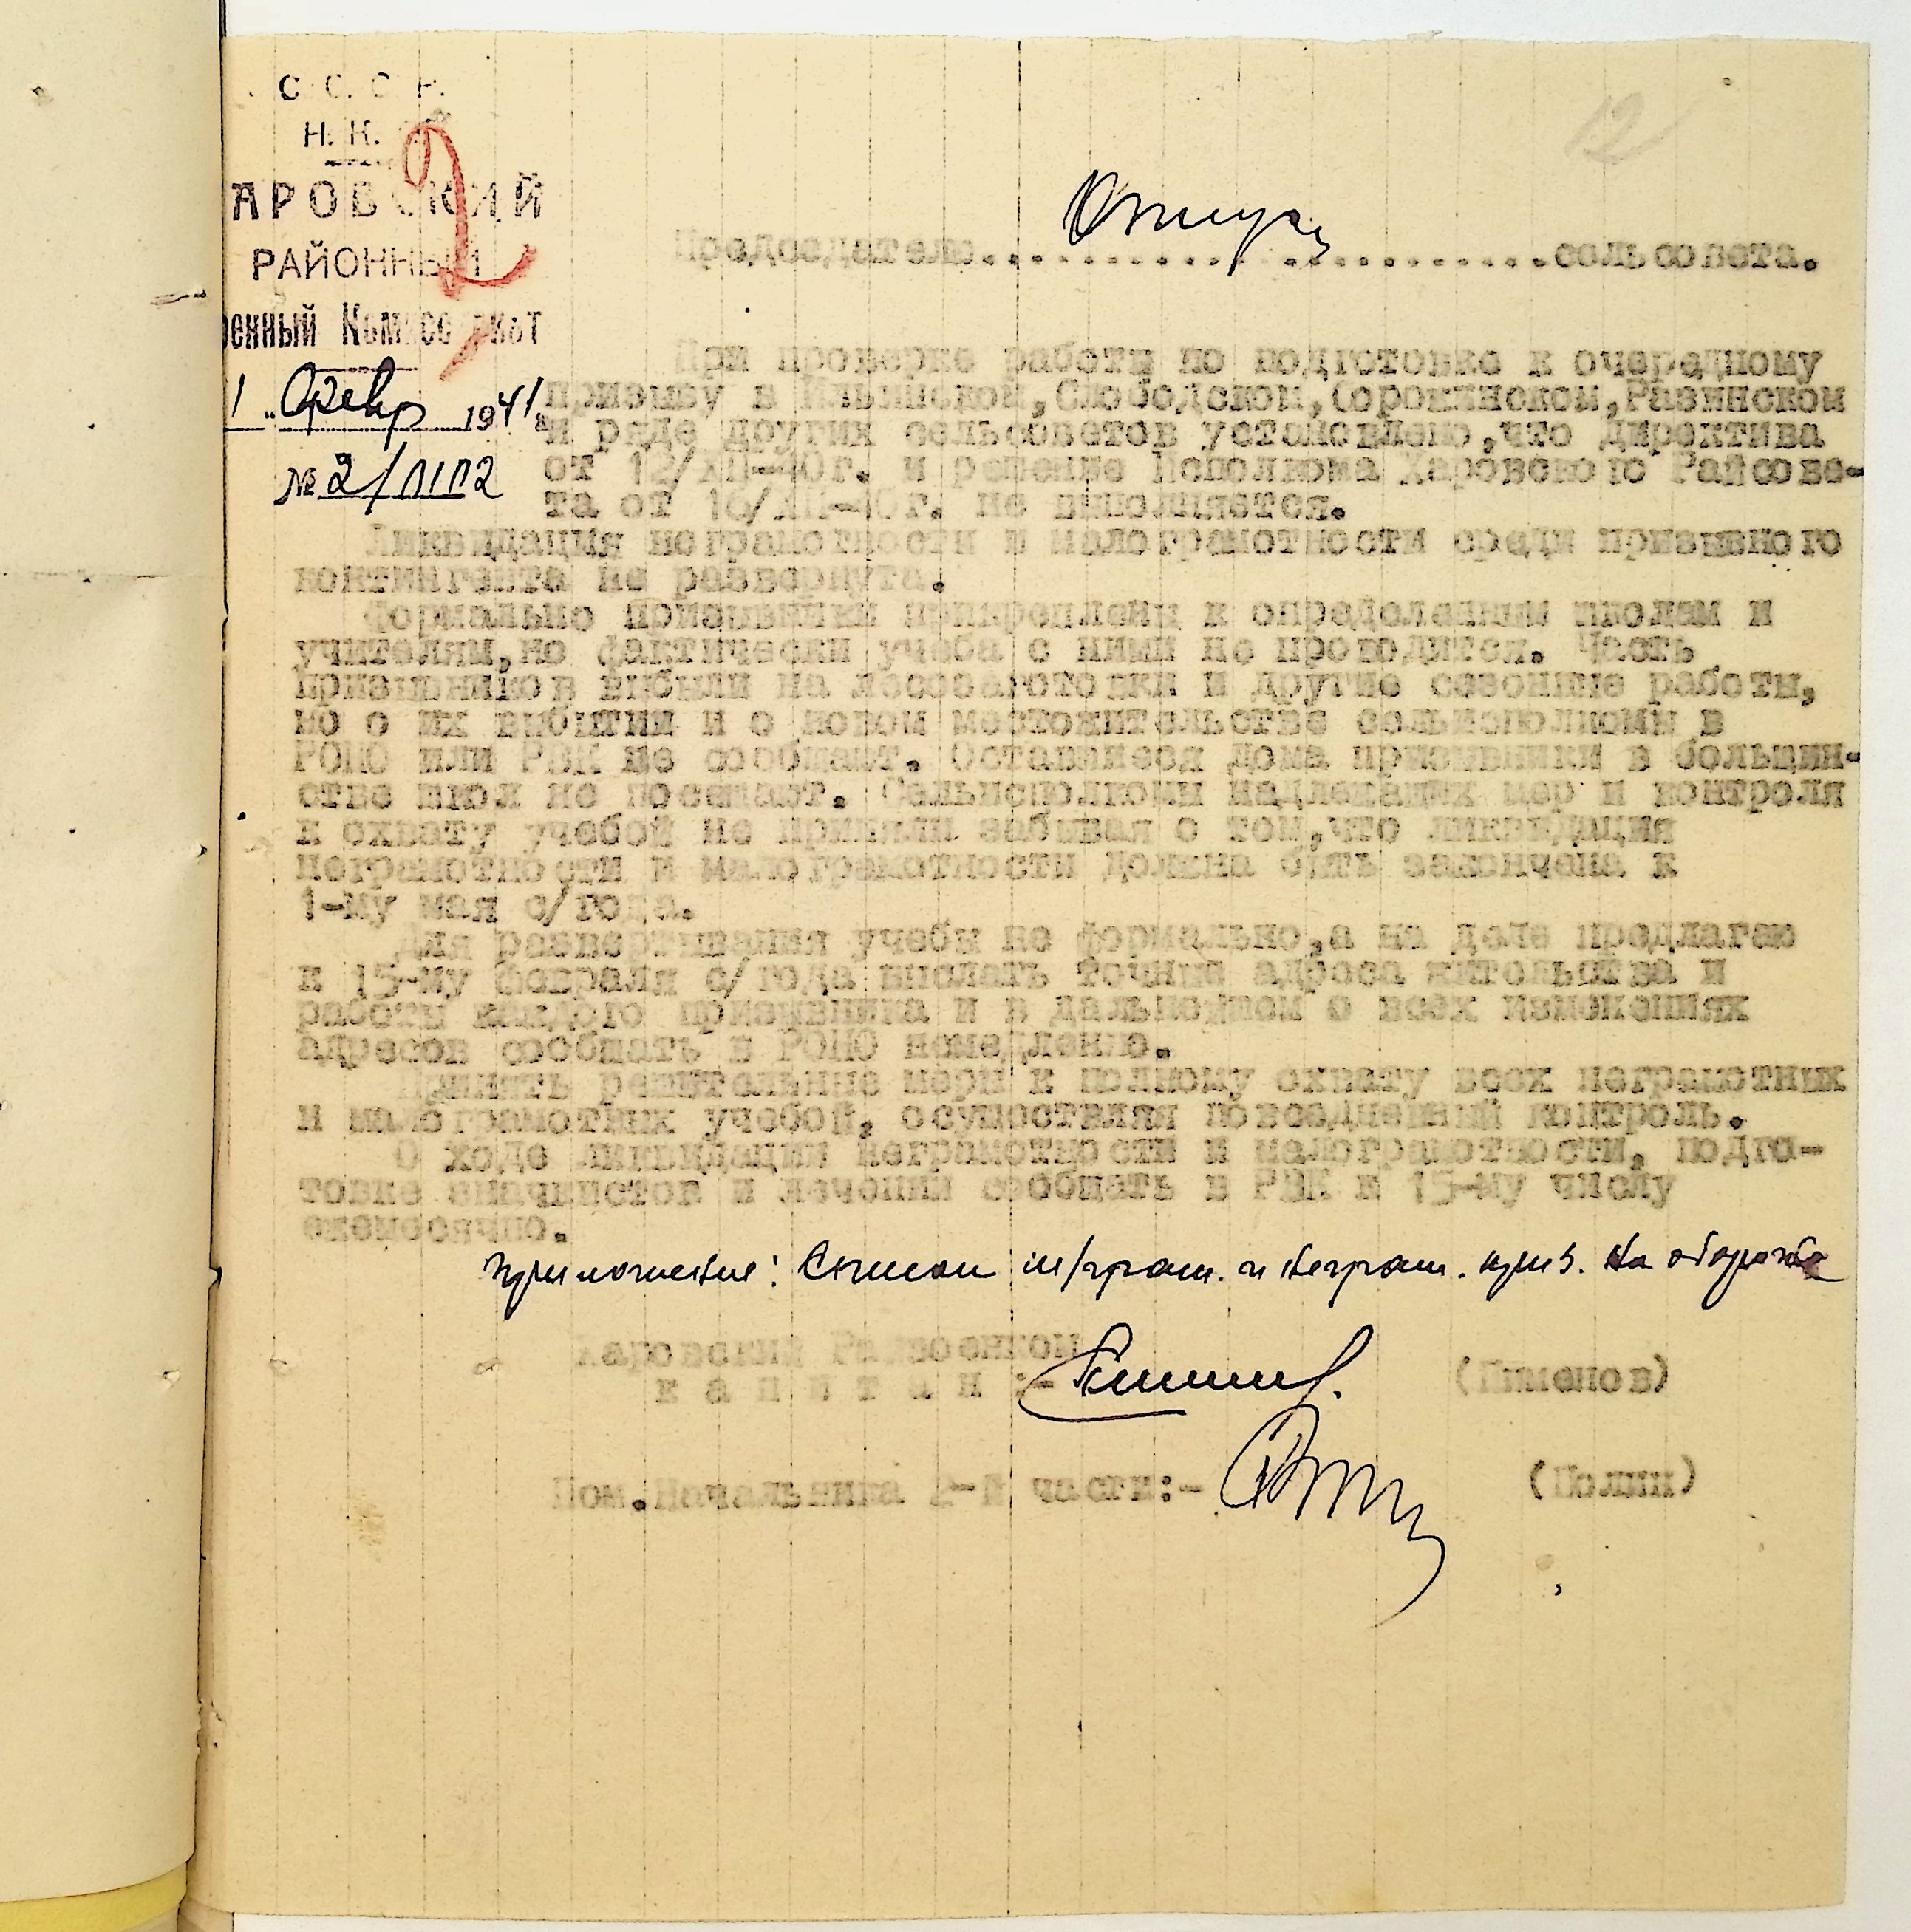 С. С. С. Р.
Н. К. О.
ХАРОВСКИЙ
РАЙОННЫЙ
Военный Комиссариат
1 „ Февр 1941 г.
№ 2/ПП2
12
Председателю..........................сельсовета.
При проверке работы по подготовке к очередному
призыву в Ильинском,Слободском,Сорожинском,Разинском
и ряде других сельсоветов установлено,что директива
от 12/XII-40г. и решение Исполкома Харовского Райсове-
та от 16/XII-40г. не выполняется.
Ликвидация неграмотности и малограмотности среди призывного
контингента не развернута.
Формально призывники прикреплены к определенным школам и
учителям,но фактически учеба с ними не проводится. Часть
призывников выбыли на лесозаготовки и другие сезонные работы,
но о их выбытии и о новом местожительстве сельисполкомы в
РОНО или РВК не сообщают. Оставшиеся дома призывники в большин-
стве школ не посещают. Сельисполкомы надлежащих мер и контроля
к охвату учебой не приняли забывая о том,что ликвидация
неграмотности и малограмотности должна быть закончена к
1-му мая с/года.
Для развертывания учебы не формально,а на деле предлагаю
к 15-му февраля с/года выслать точные адреса жительства и
работы каждого призывника и в дальнейшем о всех изменениях
адресов сообщать в РОНО немедленно.
Принять решительные меры к полному охвату всех неграмотных
и малограмотных учебой, осуществляя повседневный контроль.
О ходе ликвидации неграмотности и малограмотности, подго-
товке значкистов и лечении сообщать в РВК к 15-му числу
ежемесячно.
Приложение: Список м/грам. и неграм. приз. на обороте
Харовский Райвоенком
к а п и т а н :- (Пименов)
Пом.Начальника 2-й части:- (Полин)